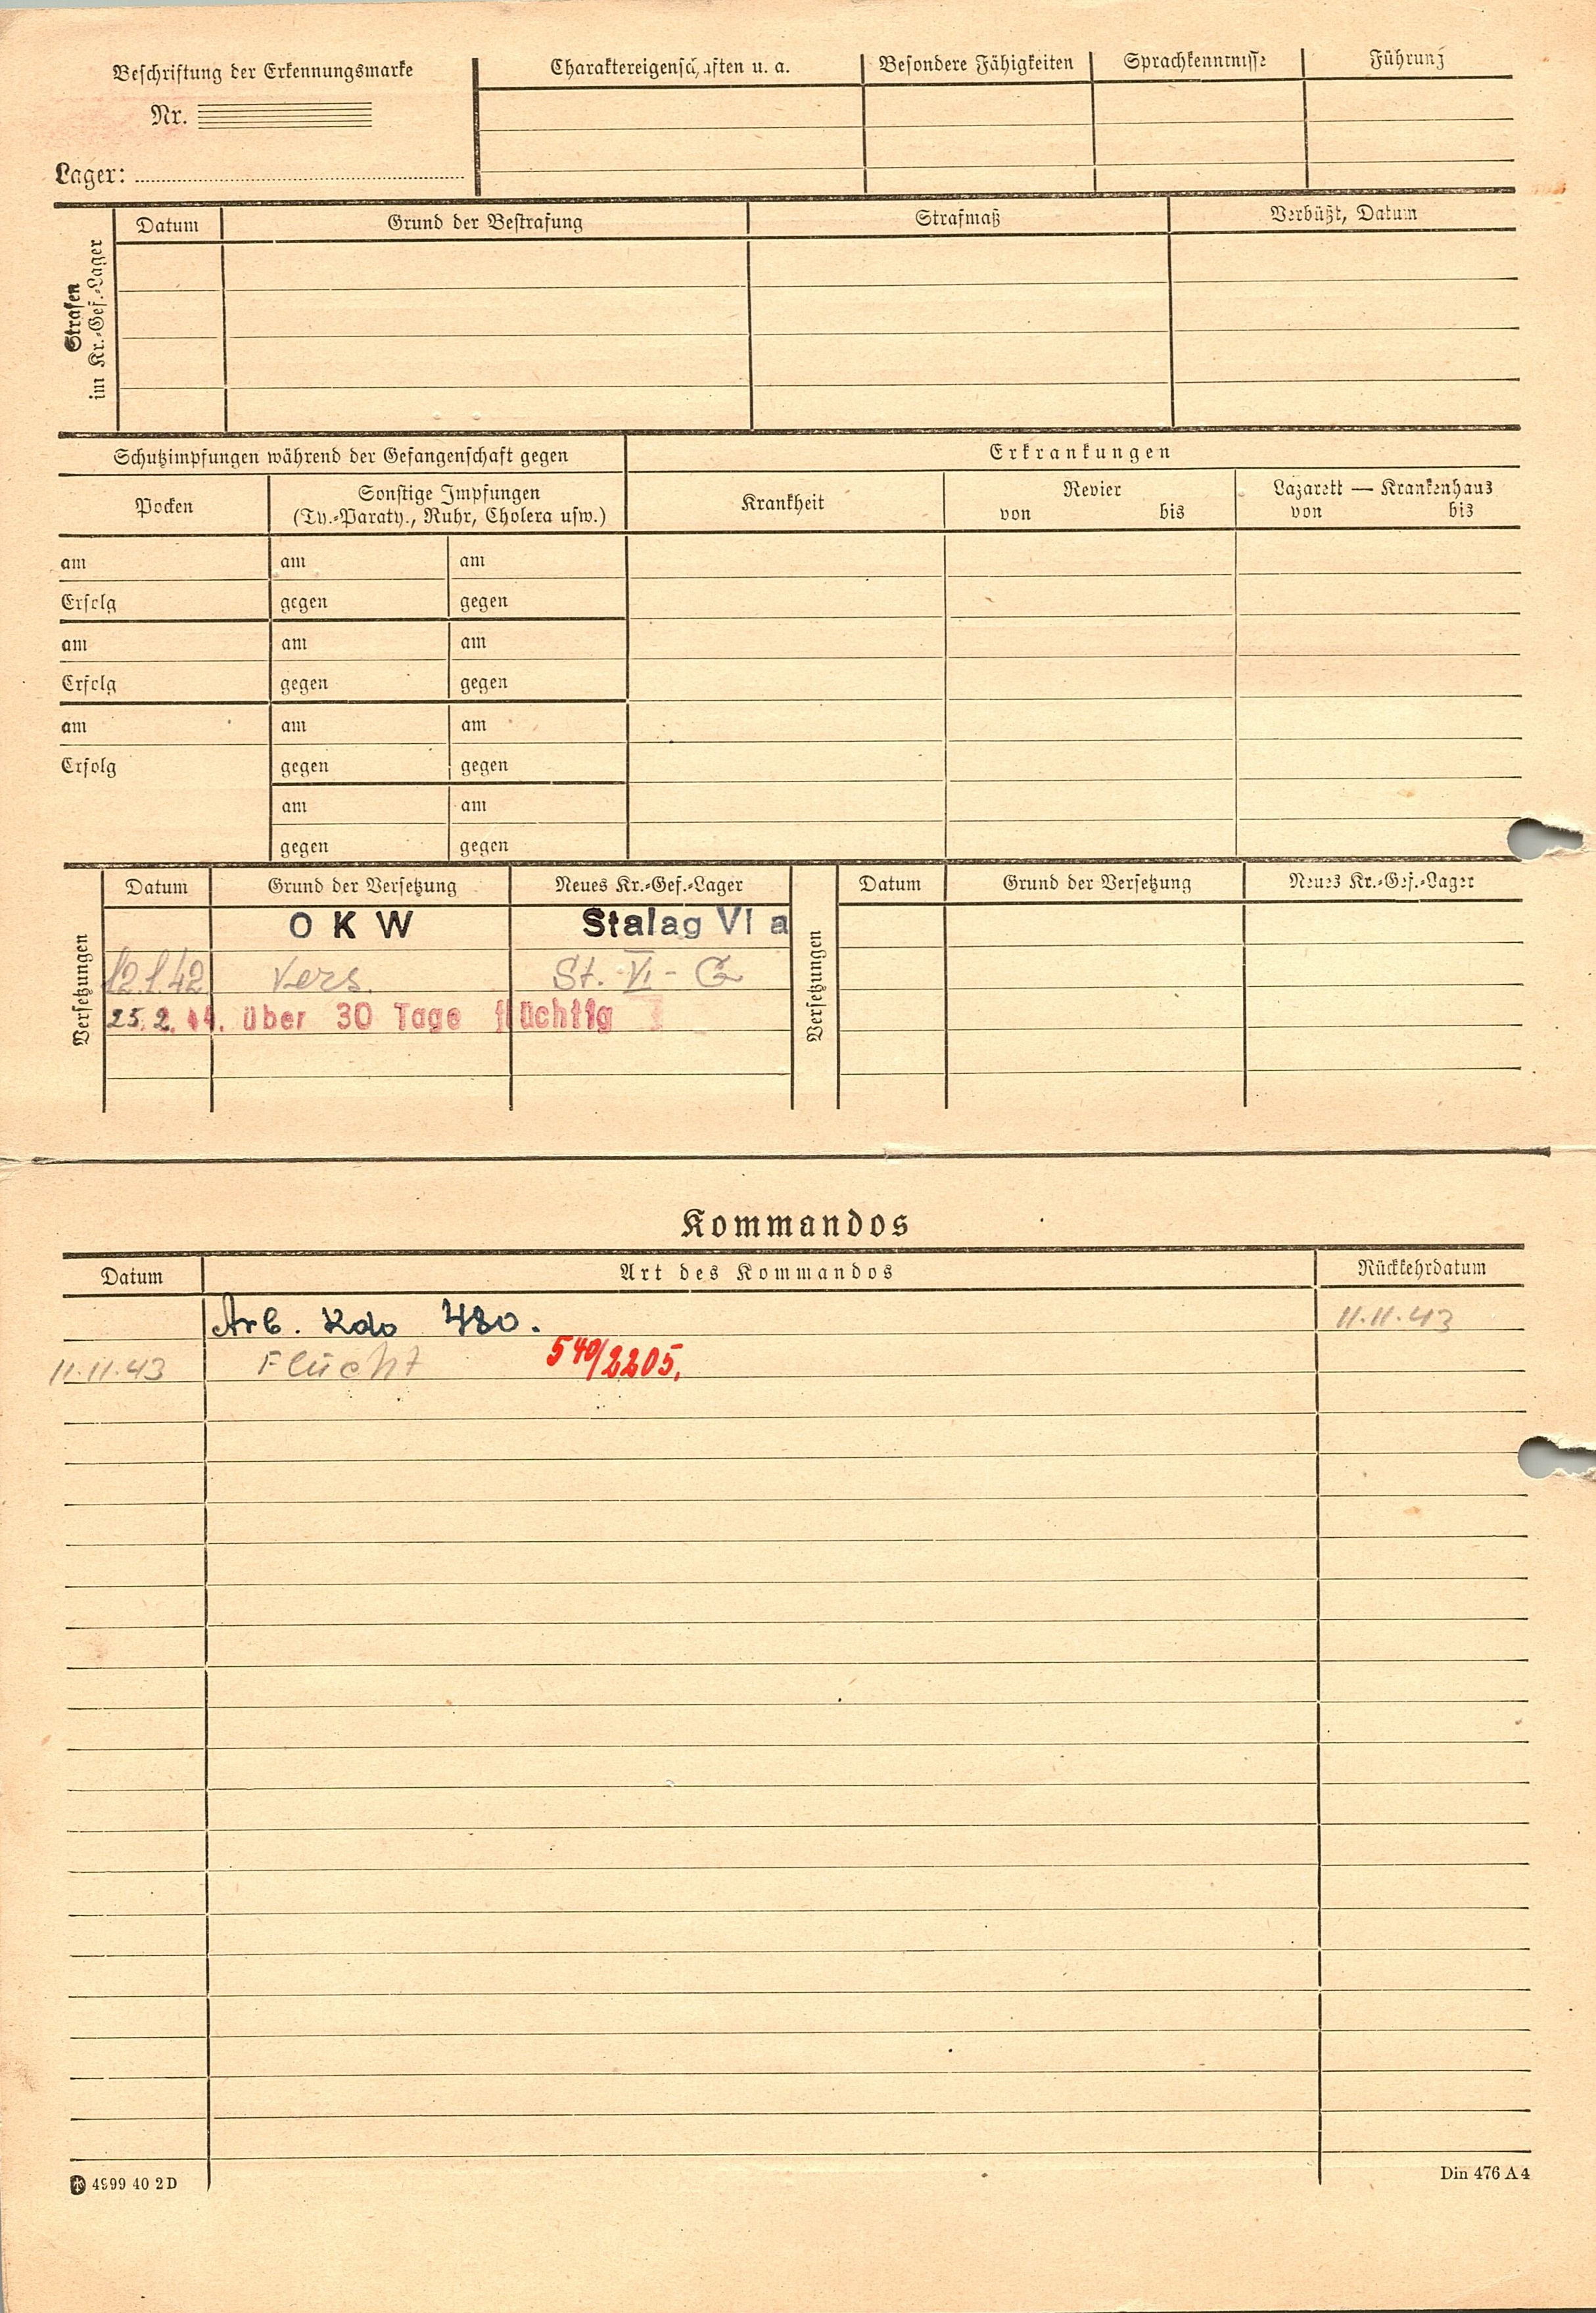 Beschriftung der Erkennungsmarke
Nr.
Lager:
Charaktereigenschaften u. a.
Besondere Fähigkeiten
Sprachkenntnisse
Führung
Strafen
im Kr.-Gef.-Lager
Datum
Grund der Bestrafung
Strafmaß
Verbüßt, Datum
Schutzimpfungen während der Gefangenschaft gegen
Erkrankungen
Pocken
Sonstige Impfungen
(Ty.-Paraty., Ruhr, Cholera usw.)
Krankheit
Revier
von bis
Lazarett — Krankenhaus
von bis
am am am
Erfolg gegen gegen
am am am
Erfolg gegen gegen
am am am
Erfolg gegen gegen
am am
gegen gegen
Versetzungen
Datum Grund der Versetzung Neues Kr.-Gef.-Lager
O K W Stalag VI a
12.1.42 Vers. St. VI - G
25.2.44. über 30 Tage flüchtig
Versetzungen
Datum Grund der Versetzung Neues Kr.-Gef.-Lager
Kommandos
Datum Art des Kommandos Rückkehrdatum
Arb. Kdo 480. 11.11.43
11.11.43 Flucht 540/2205.
4999 40 2D
Din 476 A4